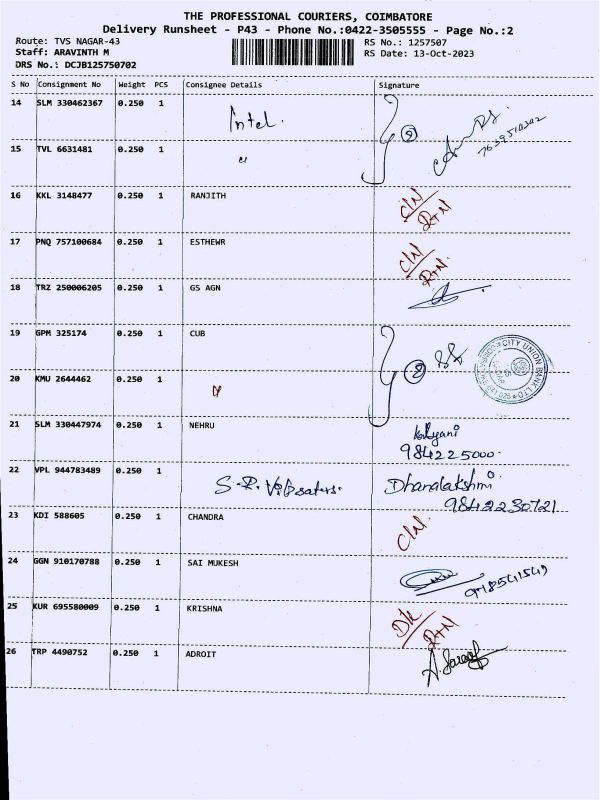 THE PROFESSIONAL COURIERS, COIMBATORE
Delivery Runsheet - P43 - Phone No.:0422-3505555 - Page No.:2
Route: TVS NAGAR-43
RS No.: 1257507
Staff: ARAVINTH M
RS Date: 13-Oct-2023
DRS No.: DCJB125750702
S No Consignment No Weight PCS Consignee Details Signature
14 SLM 330462367 0.250 1 Intel.
15 TVL 6631481 0.250 1 "
16 KKL 3148477 0.250 1 RANJITH C/N R+N
17 PNQ 757100684 0.250 1 ESTHEWR C/N R+N
18 TRZ 250006205 0.250 1 GS AGN
19 GPM 325174 0.250 1 CUB
CITY UNION BANK LTD
20 KMU 2644462 0.250 1
21 SLM 330447974 0.250 1 NEHRU
9842225000
22 VPL 944783489 0.250 1 S.R. Dhanalakshmi
9842230721
23 KDI 588605 0.250 1 CHANDRA C/N
24 GGN 910170788 0.250 1 SAI MUKESH
25 KUR 695580009 0.250 1 KRISHNA D/L R+N
26 TRP 4490752 0.250 1 ADROIT